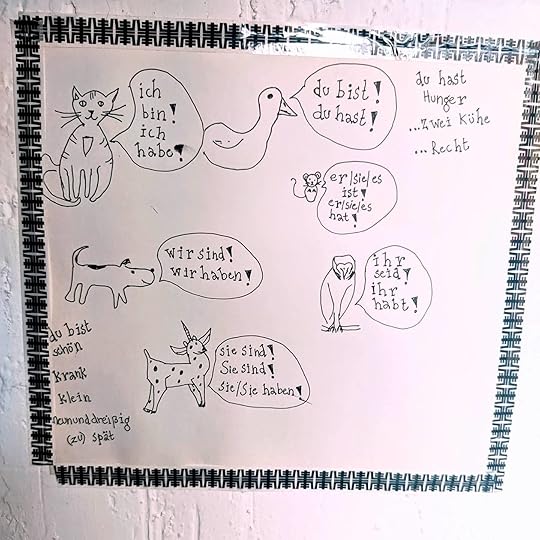 ich
bin!
ich
habe!
du bist!
du hast!
du hast
Hunger
...zwei Kühe
...Recht
er/sie/es
ist!
er/sie/es
hat!
wir sind!
wir haben!
ihr
seid!
ihr
habt!
sie sind!
Sie sind!
sie/Sie haben!
du bist
schön
krank
klein
neununddreißig
(zu) spät